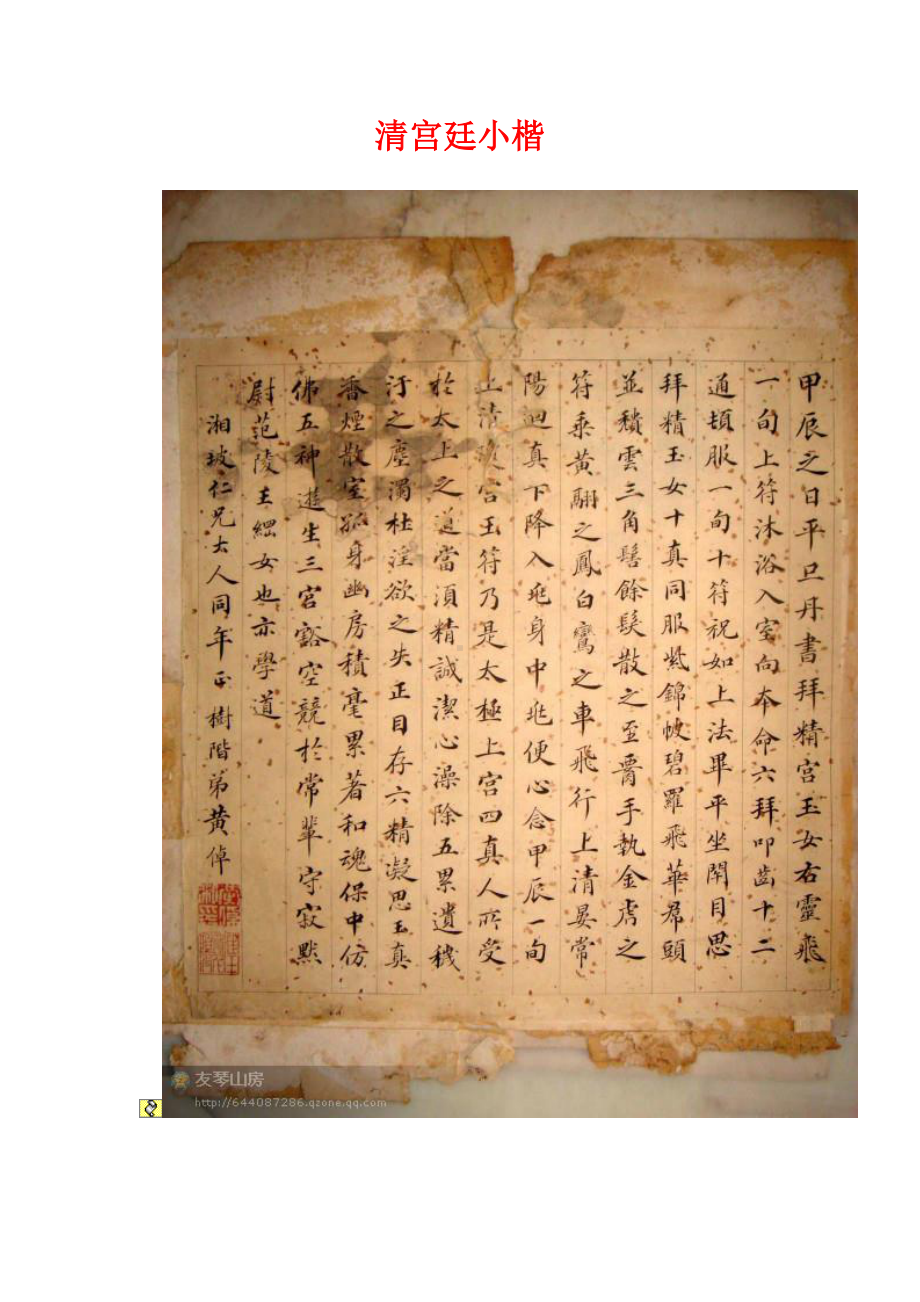 清宫廷小楷
甲辰之日平旦丹書拜精宮玉女右靈飛
一旬上符沐浴入室向本命六拜叩齒十二
通頓服一旬十符祝如上法畢平坐閉目思
拜精玉女十真同服紫錦帔碧羅飛華帬頭
並穨雲三角髻餘髮散之至手執金虎之
符乘黃翮之鳳白鸞之車飛行上清晏常
陽迴真下降入兆身中兆便心念甲辰一旬
上清瓊宮玉符乃是太極上宮四真人所受
於太上之道當須精誠潔心澡除五累遺穢
汙之塵濁杜淫欲之失正目存六精凝思玉真
香煙散室孤身幽房積毫累著和魂保中仿
佛五神遊生三宮豁空競於常輩守寂默
尉范陵王綱女也亦學道
湘坡仁兄大人同年正 樹階弟黃倬
友琴山房
http://644087286.qzone.qq.com